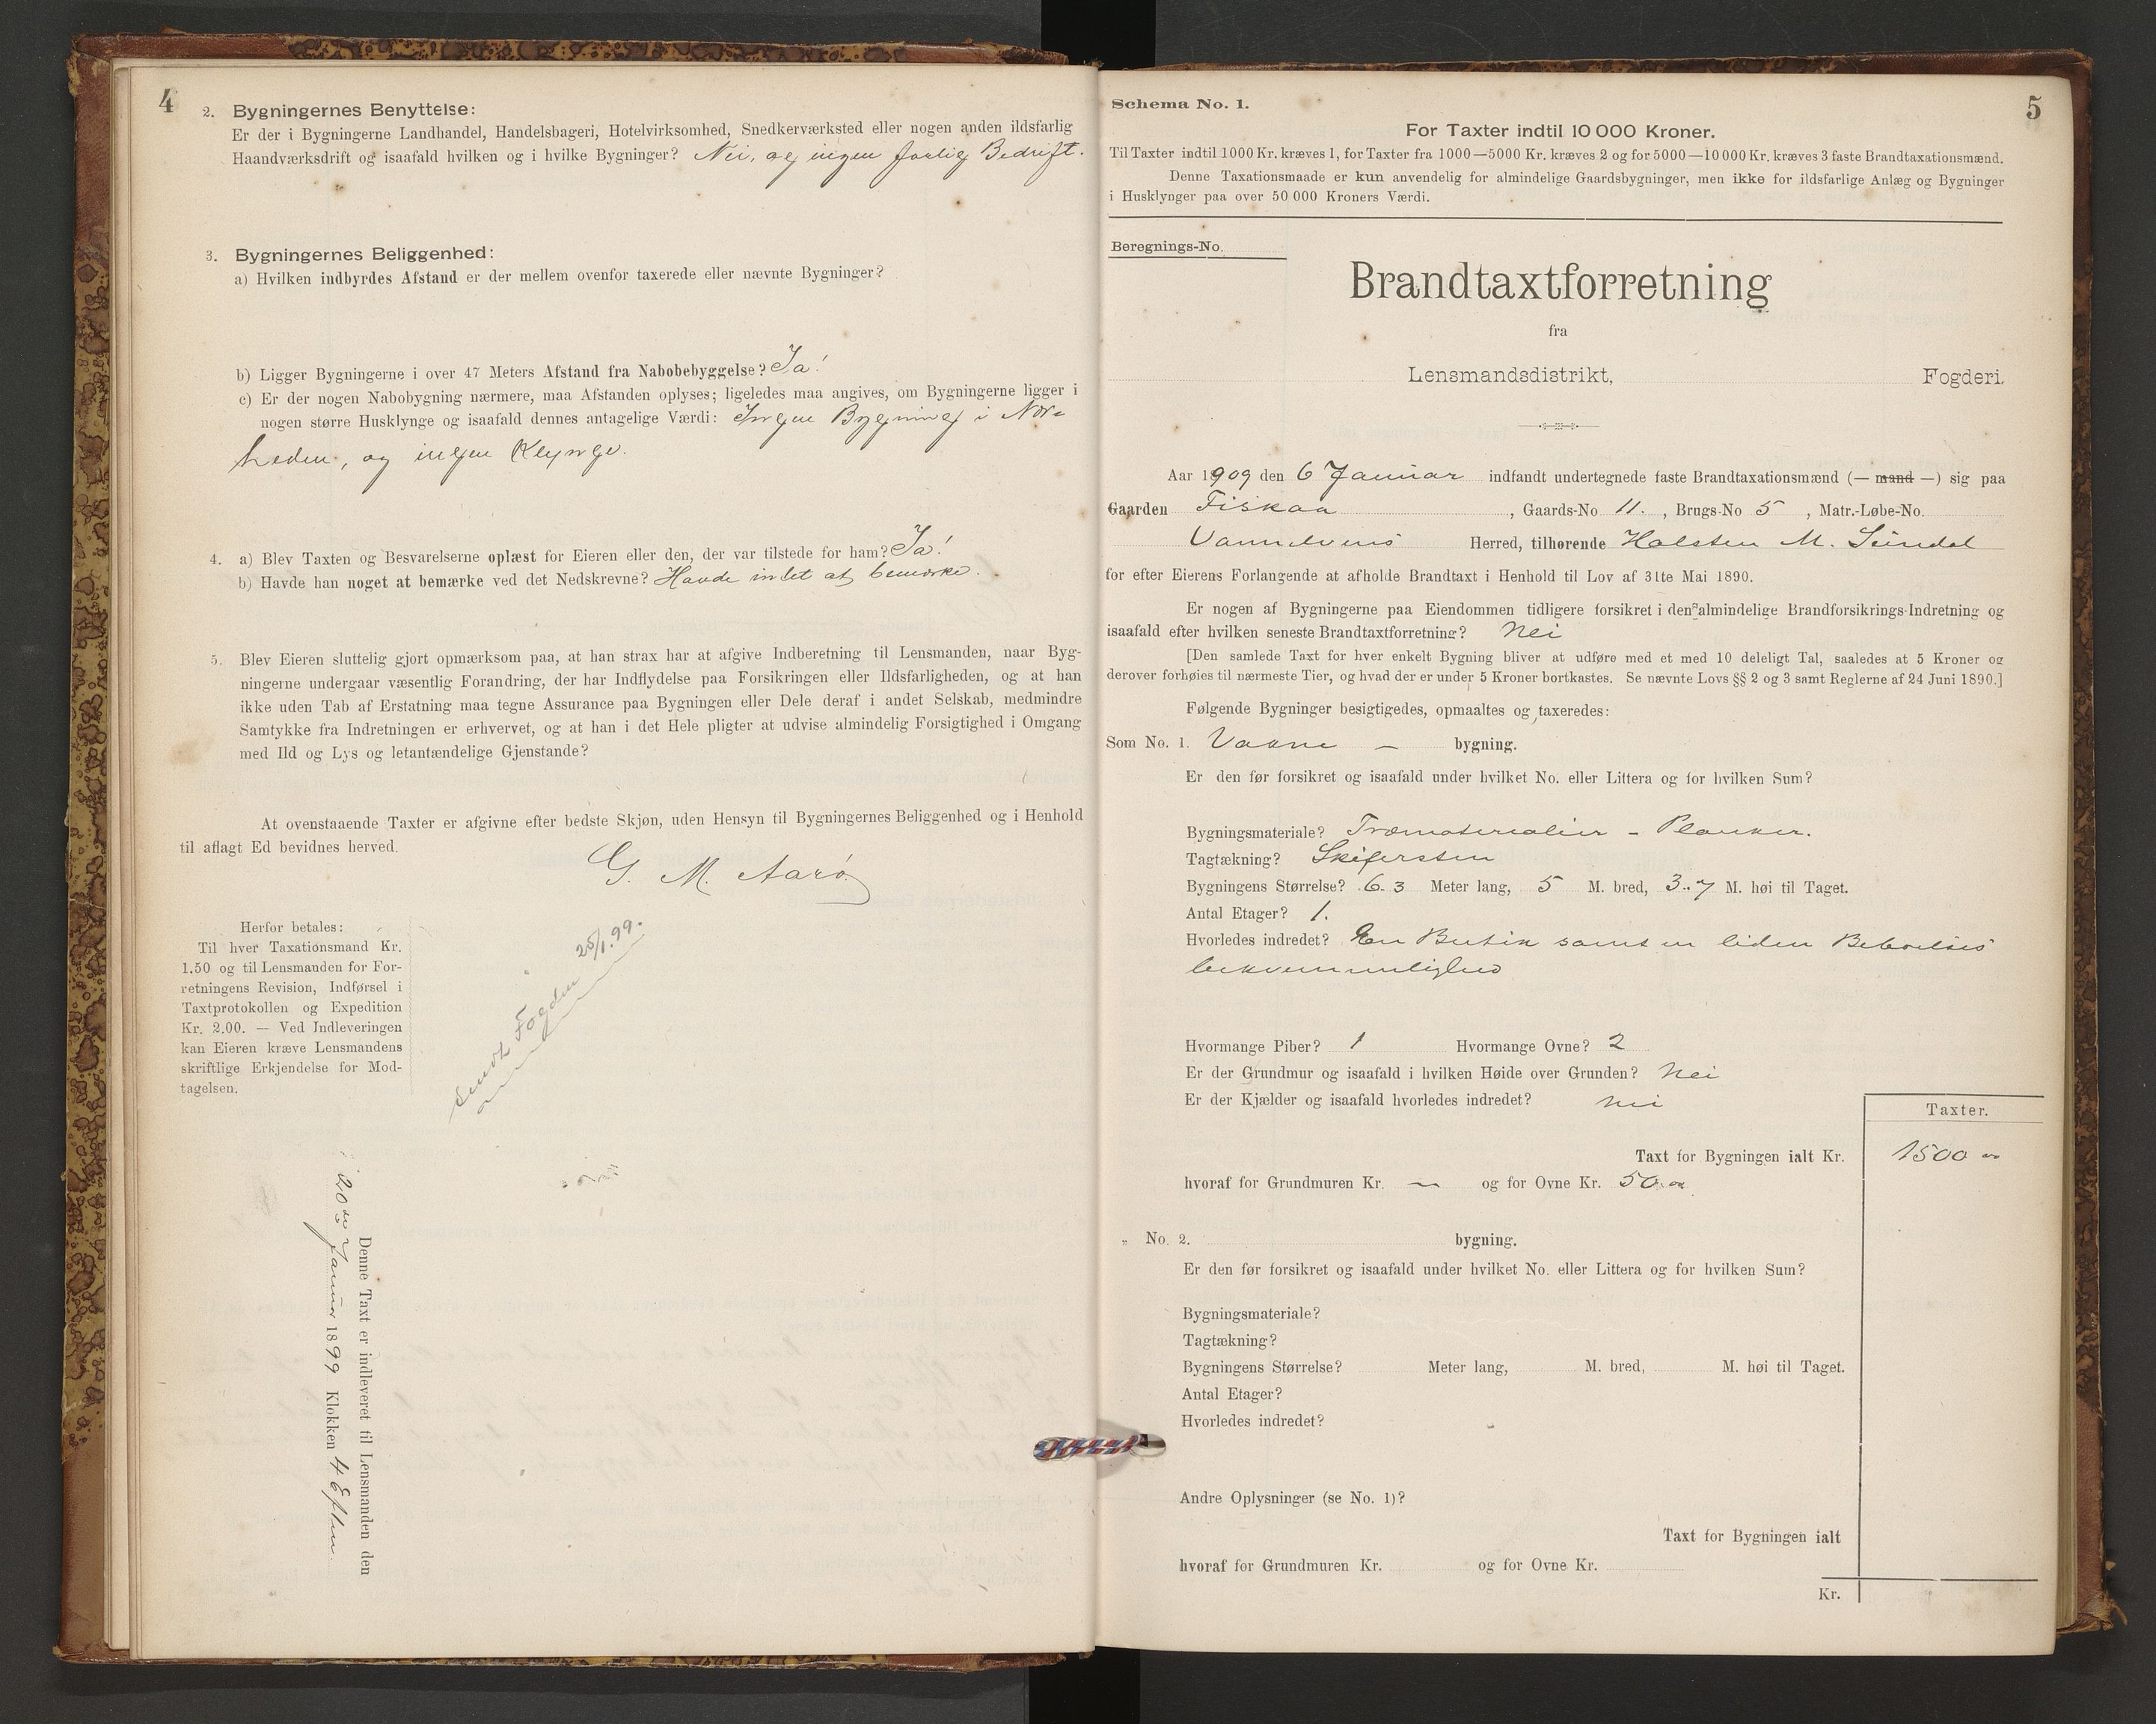 4
2. Bygningernes Benyttelse:
Er der i Bygningerne Landhandel, Handelsbageri, Hotelvirksomhed, Snedkerværksted eller nogen anden ildsfarlig
Haandværksdrift og isaafald hvilken og i hvilke Bygninger? Nei, og ingen farlig Bedrift.
3. Bygningernes Beliggenhed:
a) Hvilken indbyrdes Afstand er der mellem ovenfor taxerede eller nævnte Bygninger?
b) Ligger Bygningerne i over 47 Meters Afstand fra Nabobebyggelse? Ja!
c) Er der nogen Nabobygning nærmere, maa Afstanden oplyses; ligeledes maa angives, om Bygningerne ligger i
nogen større Husklynge og isaafald dennes antagelige Værdi: Ingen Bygning i Nær-
heden, og ingen Klynge.
4. a) Blev Taxten og Besvarelserne oplæst for Eieren eller den, der var tilstede for ham? Ja!
b) Havde han noget at bemærke ved det Nedskrevne? Havde intet at bemærke.
5. Blev Eieren sluttelig gjort opmærksom paa, at han strax har at afgive Indberetning til Lensmanden, naar Byg-
ningerne undergaar væsentlig Forandring, der har Indflydelse paa Forsikringen eller Ildsfarligheden, og at han
ikke uden Tab af Erstatning maa tegne Assurance paa Bygningen eller Dele deraf i andet Selskab, medmindre
Samtykke fra Indretningen er erhvervet, og at han i det Hele pligter at udvise almindelig Forsigtighed i Omgang
med Ild og Lys og letantændelige Gjenstande?
At ovenstaaende Taxter er afgivne efter bedste Skjøn, uden Hensyn til Bygningernes Beliggenhed og i Henhold
til aflagt Ed bevidnes herved.
G. M. Aarø
Herfor betales:
Til hver Taxationsmand Kr.
1.50 og til Lensmanden for For-
retningens Revision, Indførsel i
Taxtprotokollen og Expedition
Kr. 2.00. — Ved Indleveringen
kan Eieren kræve Lensmandens
skriftlige Erkjendelse for Mod-
tagelsen.
Sendt Fogden 25/1.99.
Denne Taxt er indleveret til Lensmanden den
20de Januar 1899 Klokken 4 Eftm.
5
Schema No. 1.
For Taxter indtil 10 000 Kroner.
Til Taxter indtil 1000 Kr. kræves 1, for Taxter fra 1000—5000 Kr. kræves 2 og for 5000—10 000 Kr. kræves 3 faste Brandtaxationsmænd.
Denne Taxationsmaade er kun anvendelig for almindelige Gaardsbygninger, men ikke for ildsfarlige Anlæg og Bygninger
i Husklynger paa over 50 000 Kroners Værdi.
Beregnings-No.
Brandtaxtforretning
fra
Lensmandsdistrikt, Fogderi.
Aar 1909 den 6 Januar indfandt undertegnede faste Brandtaxationsmænd (— mand —) sig paa
Gaarden Fiskaa, Gaards-No 11., Brugs-No 5, Matr.-Løbe-No.
Vannelvens Herred, tilhørende Halsten M. Sundal
for efter Eierens Forlangende at afholde Brandtaxt i Henhold til Lov af 31te Mai 1890.
Er nogen af Bygningerne paa Eiendommen tidligere forsikret i den almindelige Brandforsikrings-Indretning og
isaafald efter hvilken seneste Brandtaxtforretning? Nei
[Den samlede Taxt for hver enkelt Bygning bliver at udføre med et med 10 deleligt Tal, saaledes at 5 Kroner og
derover forhøies til nærmeste Tier, og hvad der er under 5 Kroner bortkastes. Se nævnte Lovs §§ 2 og 3 samt Reglerne af 24 Juni 1890.]
Følgende Bygninger besigtigedes, opmaaltes og taxeredes:
Som No. 1. Vaane — bygning.
Er den før forsikret og isaafald under hvilket No. eller Littera og for hvilken Sum?
Bygningsmateriale? Træmaterialier – Planker.
Tagtækning? Skifersten
Bygningens Størrelse? 6.3 Meter lang, 5 M. bred, 3.7 M. høi til Taget.
Antal Etager? 1.
Hvorledes indredet? En Butik samt en liden Beboelses
bekvemmelighed
Hvormange Piber? 1 Hvormange Ovne? 2
Er der Grundmur og isaafald i hvilken Høide over Grunden? Nei
Er der Kjælder og isaafald hvorledes indredet? Nei
Taxter.
Taxt for Bygningen ialt Kr. 1500
hvoraf for Grundmuren Kr. — og for Ovne Kr. 50.
„ No. 2. bygning.
Er den før forsikret og isaafald under hvilket No. eller Littera og for hvilken Sum?
Bygningsmateriale?
Tagtækning?
Bygningens Størrelse? Meter lang, M. bred, M. høi til Taget.
Antal Etager?
Hvorledes indredet?
Andre Oplysninger (se No. 1)?
Taxt for Bygningen ialt
hvoraf for Grundmuren Kr. og for Ovne Kr.
Kr.